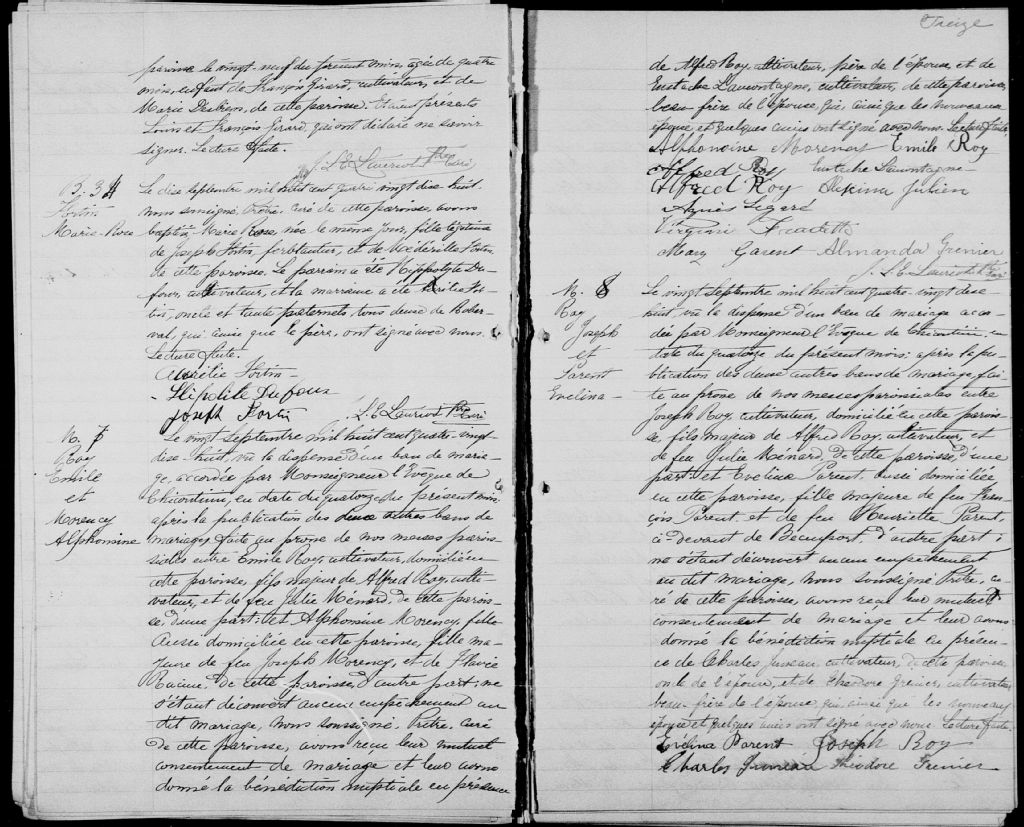 paroisse le vingt-neuf du présent mois, agée de quatre
mois, enfant de François Girard, cultivateur, et de
Marie Desbiens, de cette paroisse. Etaient présents
Louis et François Girard, qui ont déclaré ne savoir
signer. Lecture faite.
J. L. E. Lauriot Ptre Curé
B. 34
Fortin
Marie-Rose
Le dix septembre mil huit cent quatre vingt dix huit
nous soussigné, Prêtre, curé de cette paroisse, avons
baptisé Marie Rose, née le même jour, fille légitime
de Joseph Fortin, ferblantier, et de Médérille Fortin,
de cette paroisse. Le parrain a été Hippolyte Du-
four, cultivateur, et la marraine a été
oncle et tante paternels, tous deux de Rober-
val, qui ainsi que le père, ont signé avec nous.
Lecture faite.
Aurélie Fortin
Hipolite Dufour
Joseph Fortin
J. L. E. Lauriot Ptre Curé
M. 7
Roy
Emile
et
Morency
Alphonsine
Le vingt septembre mil huit cent quatre-vingt-
dix-huit, vu la dispense d'un ban de maria-
ge, accordée par Monseigneur l'Evêque de
Chicoutimi, en date du quatorze du présent mois
après la publication des deux autres bans de
mariage, faite au prone de nos messes parois-
siales entre Emile Roy, cultivateur, domicilié en
cette paroisse, fils majeur de Alfred Roy, culti-
vateur, et de feu Julie Ménard, de cette parois-
se, d'une part; et Alphonsine Morency, fille
aussi domiciliée en cette paroisse, fille ma-
jeure de feu Joseph Morency, et de Flavie
Racine, de cette paroisse, d'autre part; ne
s'étant découvert aucun empêchement au
dit mariage, nous soussigné, Prêtre, curé
de cette paroisse, avons reçu leur mutuel
consentement de mariage et leur avons
donné la bénédiction nuptiale en présence
Treize
de Alfred Roy, cultivateur, père de l'époux et de
Eustache Lamontagne, cultivateur, de cette paroisse,
beau frère de l'épouse, qui, ainsi que les nouveaux
époux et quelques amis ont signé avec nous. Lecture faite.
Alphonsine Morency Emile Roy
Alfred Roy Eustache Lamontagne
Alfred Roy Alexina Julien
Agnès Légaré
Virginie
Mary Garent Almanda Grenier
J. L. E. Lauriot Ptre Curé
M. 8
Roy
Joseph
et
Parent
Evelina
Le vingt septembre mil huit cent quatre-vingt dix
huit, vu la dispense d'un ban de mariage accor-
dée par Monseigneur l'Evêque de Chicoutimi, en
date du quatorze du présent mois; après la pu-
blication des deux autres bans de mariage, fai-
te au prone de nos messes paroissiales entre
Joseph Roy, cultivateur, domicilié en cette parois-
se, fils majeur de Alfred Roy, cultivateur, et
de feu Julie Ménard, de cette paroisse d'une
part; et Evelina Parent, aussi domiciliée
en cette paroisse, fille majeure de feu Fran-
çois Parent et de feu Henriette Parent,
ci devant de Beauport d'autre part;
ne s'étant découvert aucun empêchement
au dit mariage, nous soussigné Prêtre, cu-
ré de cette paroisse, avons reçu leur mutuel
consentement de mariage et leur avons
donné la bénédiction nuptiale en présen-
ce de Charles Juneau, cultivateur, de cette paroisse,
oncle de l'époux, et de Théodore Grenier, cultivateur
beau frère de l'épouse, qui, ainsi que les nouveaux
époux et quelques amis ont signé avec nous. Lecture faite.
Evélina Parent Joseph Roy
Charles Juneau Théodore Grenier